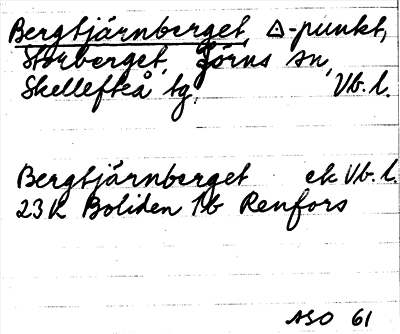 Bergtjärnberget, △-punkt,
Storberget, Jörns sn,
Skellefteå tg. Vb. l.
Bergtjärnberget ek Vb. l.
23K Boliden 1b Renfors
ASO 61